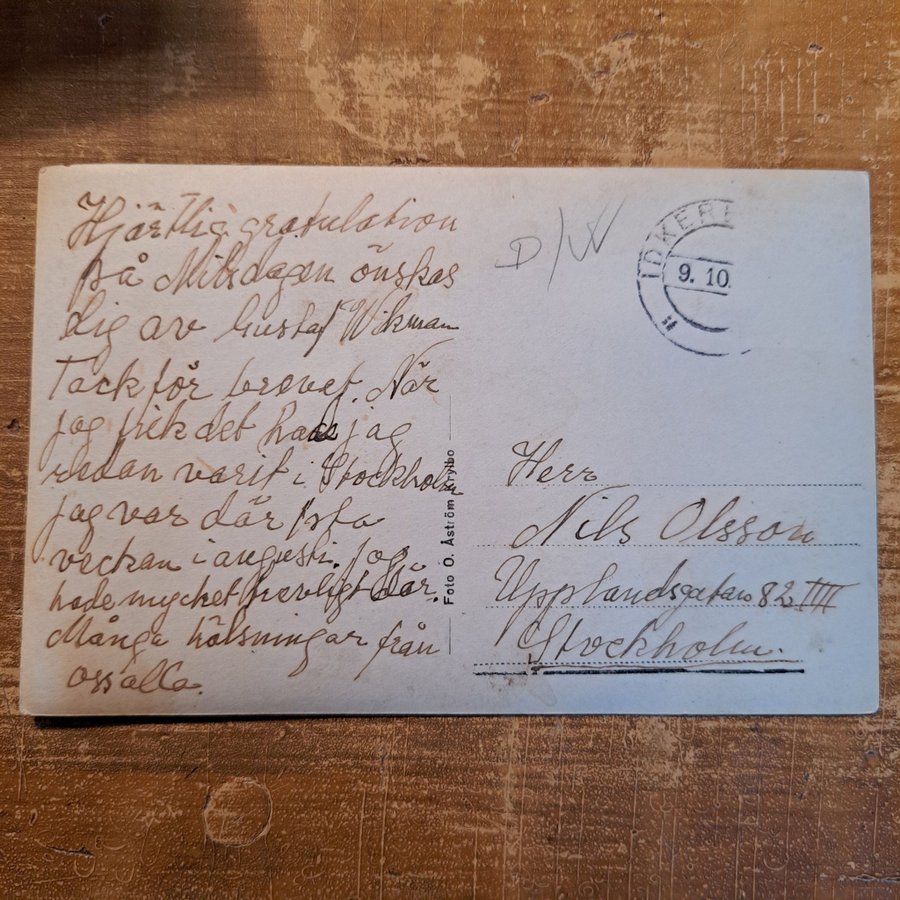 Hjärtlig gratulation
på Nilsdagen önskas
dig av Gustaf Wikman
Tack för brevet. När
jag fick det hade jag
redan varit i Stockholm
jag var där sista
veckan i augusti. Jag
hade mycket trevligt där.
Många hälsningar från
oss alla.
Foto O. Åström Krylbo
D/W
IDKERB
9. 10.
Herr
Nils Olsson
Upplandsgatan 82 IIII
Stockholm.